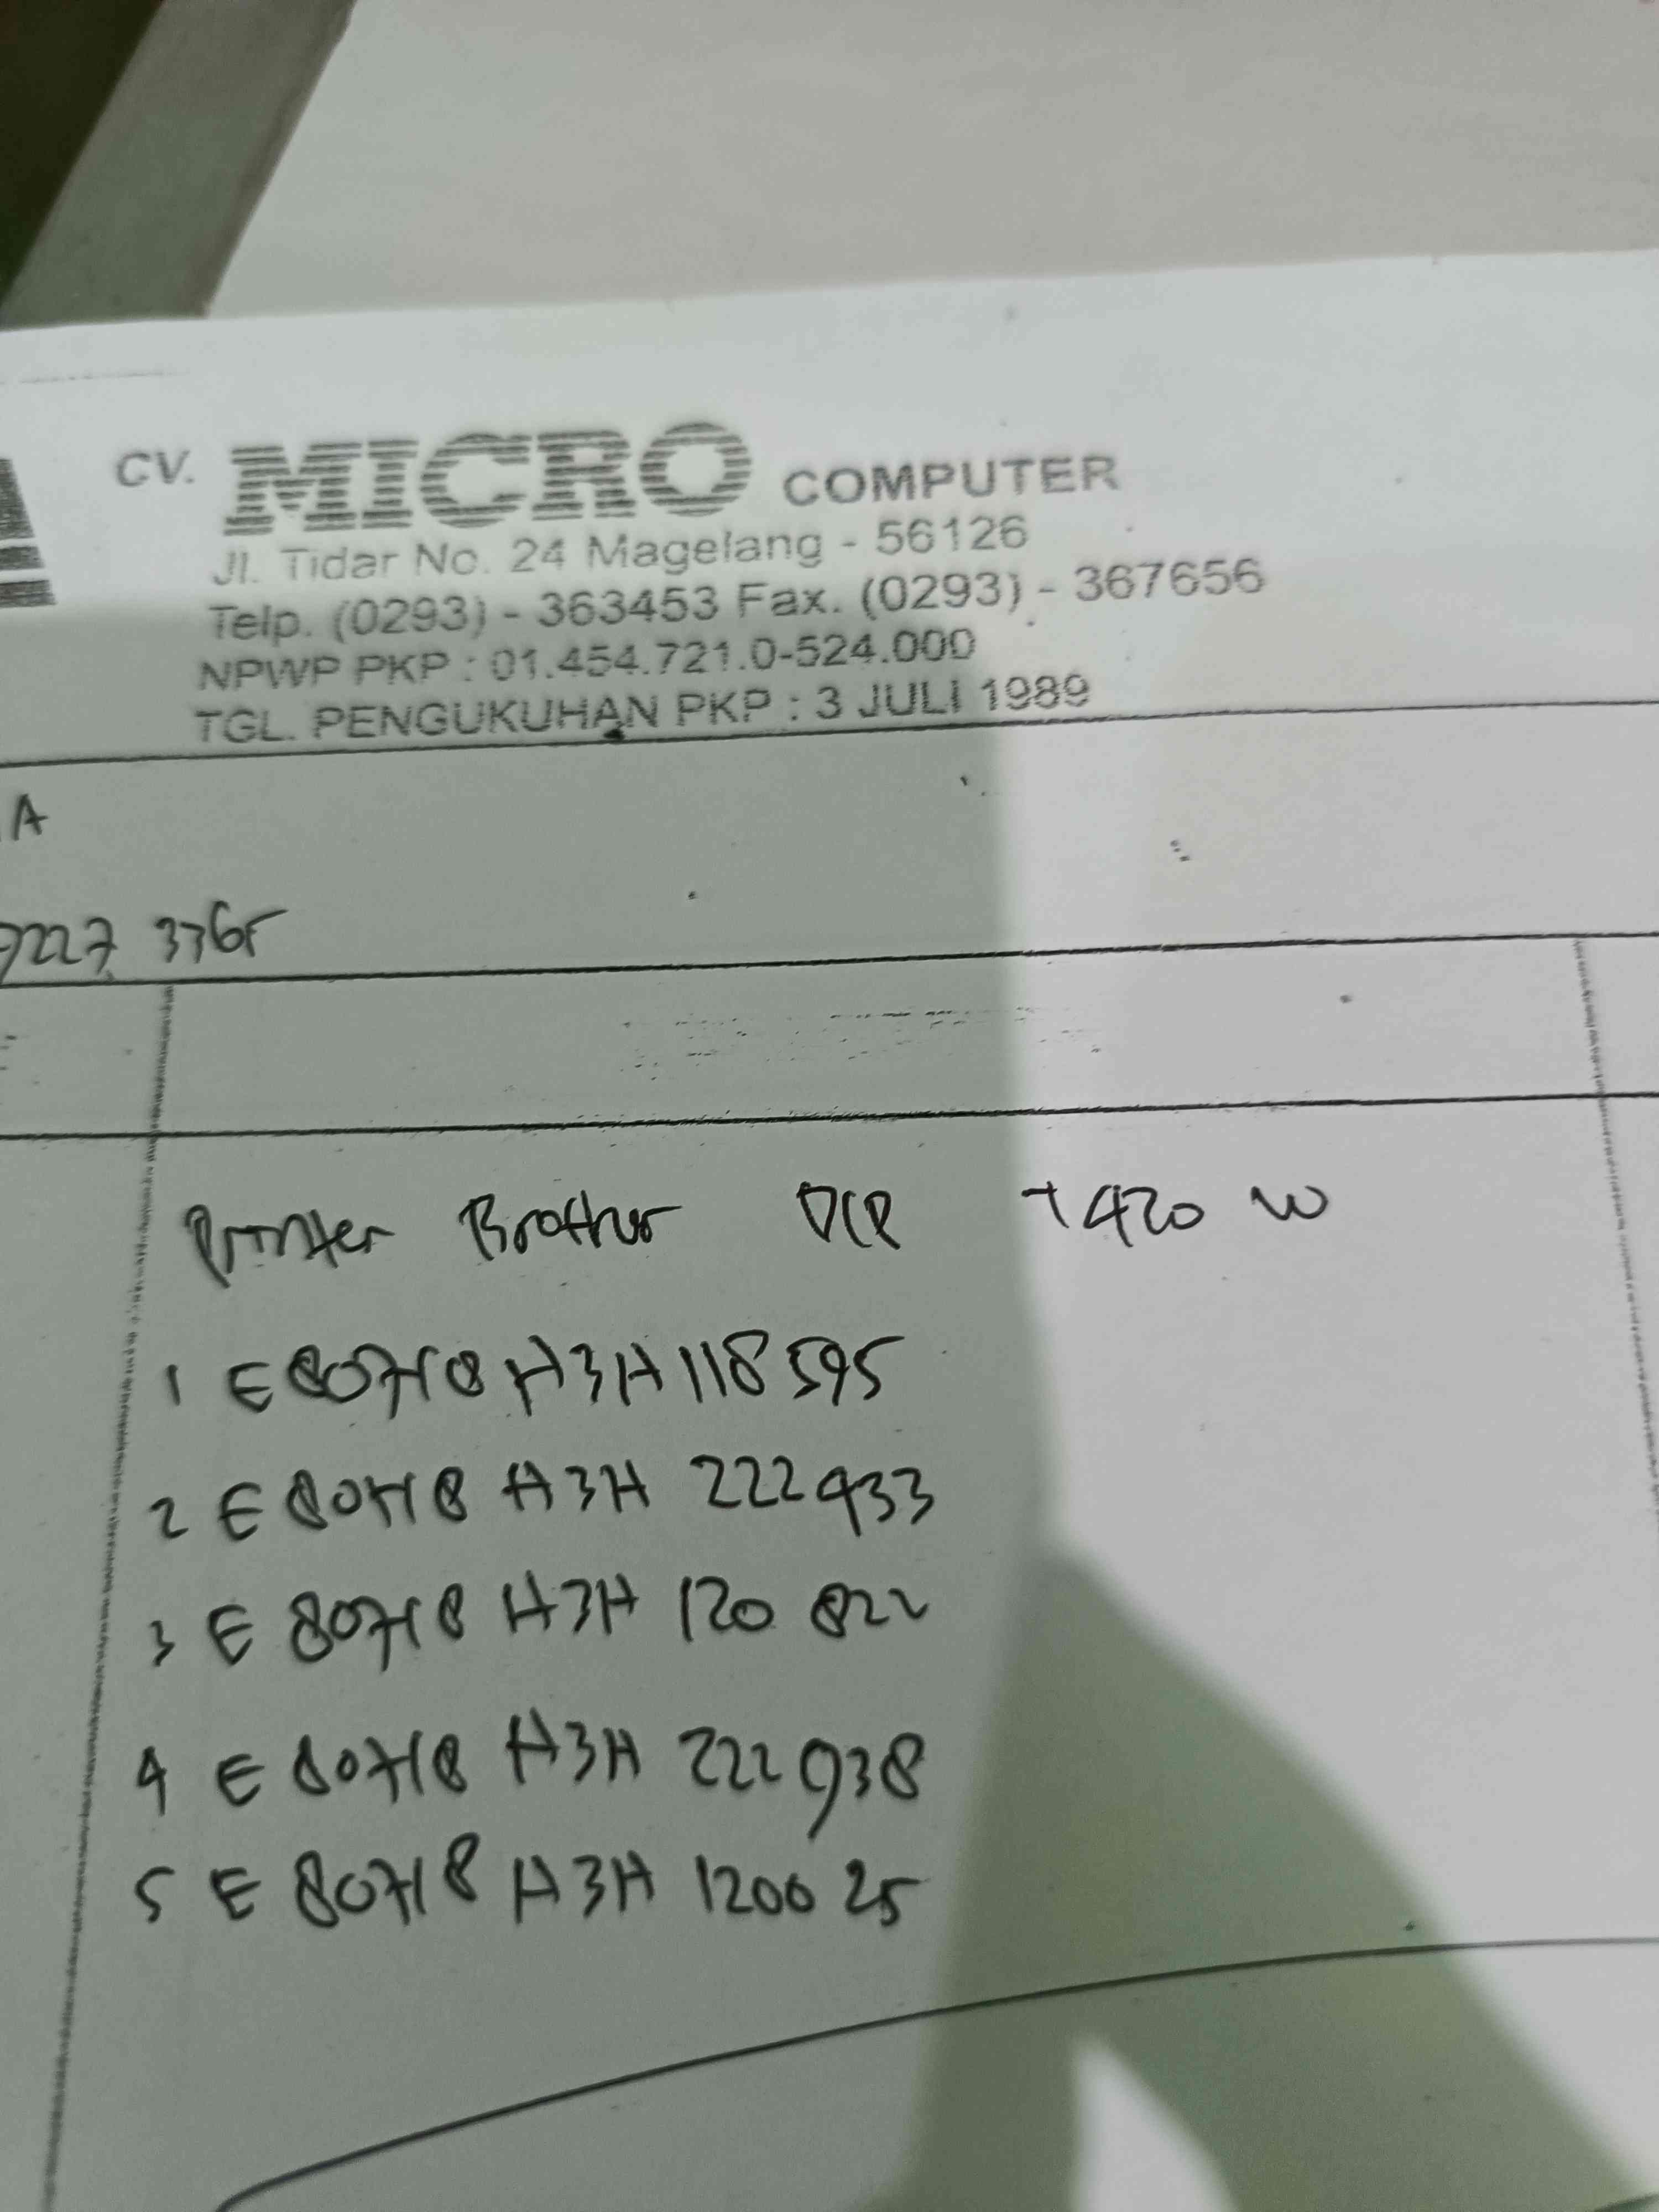 CV. MICRO COMPUTER
Jl. Tidar No. 24 Magelang - 56126
Telp. (0293) - 363453 Fax. (0293) - 367656
NPWP PKP : 01.454.721.0-524.000
TGL. PENGUKUHAN PKP : 3 JULI 1989
A
7227 3365
Printer Brother DCP T420 W
1 E80718 H3H118595
2 E80718 H3H 222933
3 E80718 H3H 120 822
4 E80718 H3H 222938
5 E80718 H3H 120025